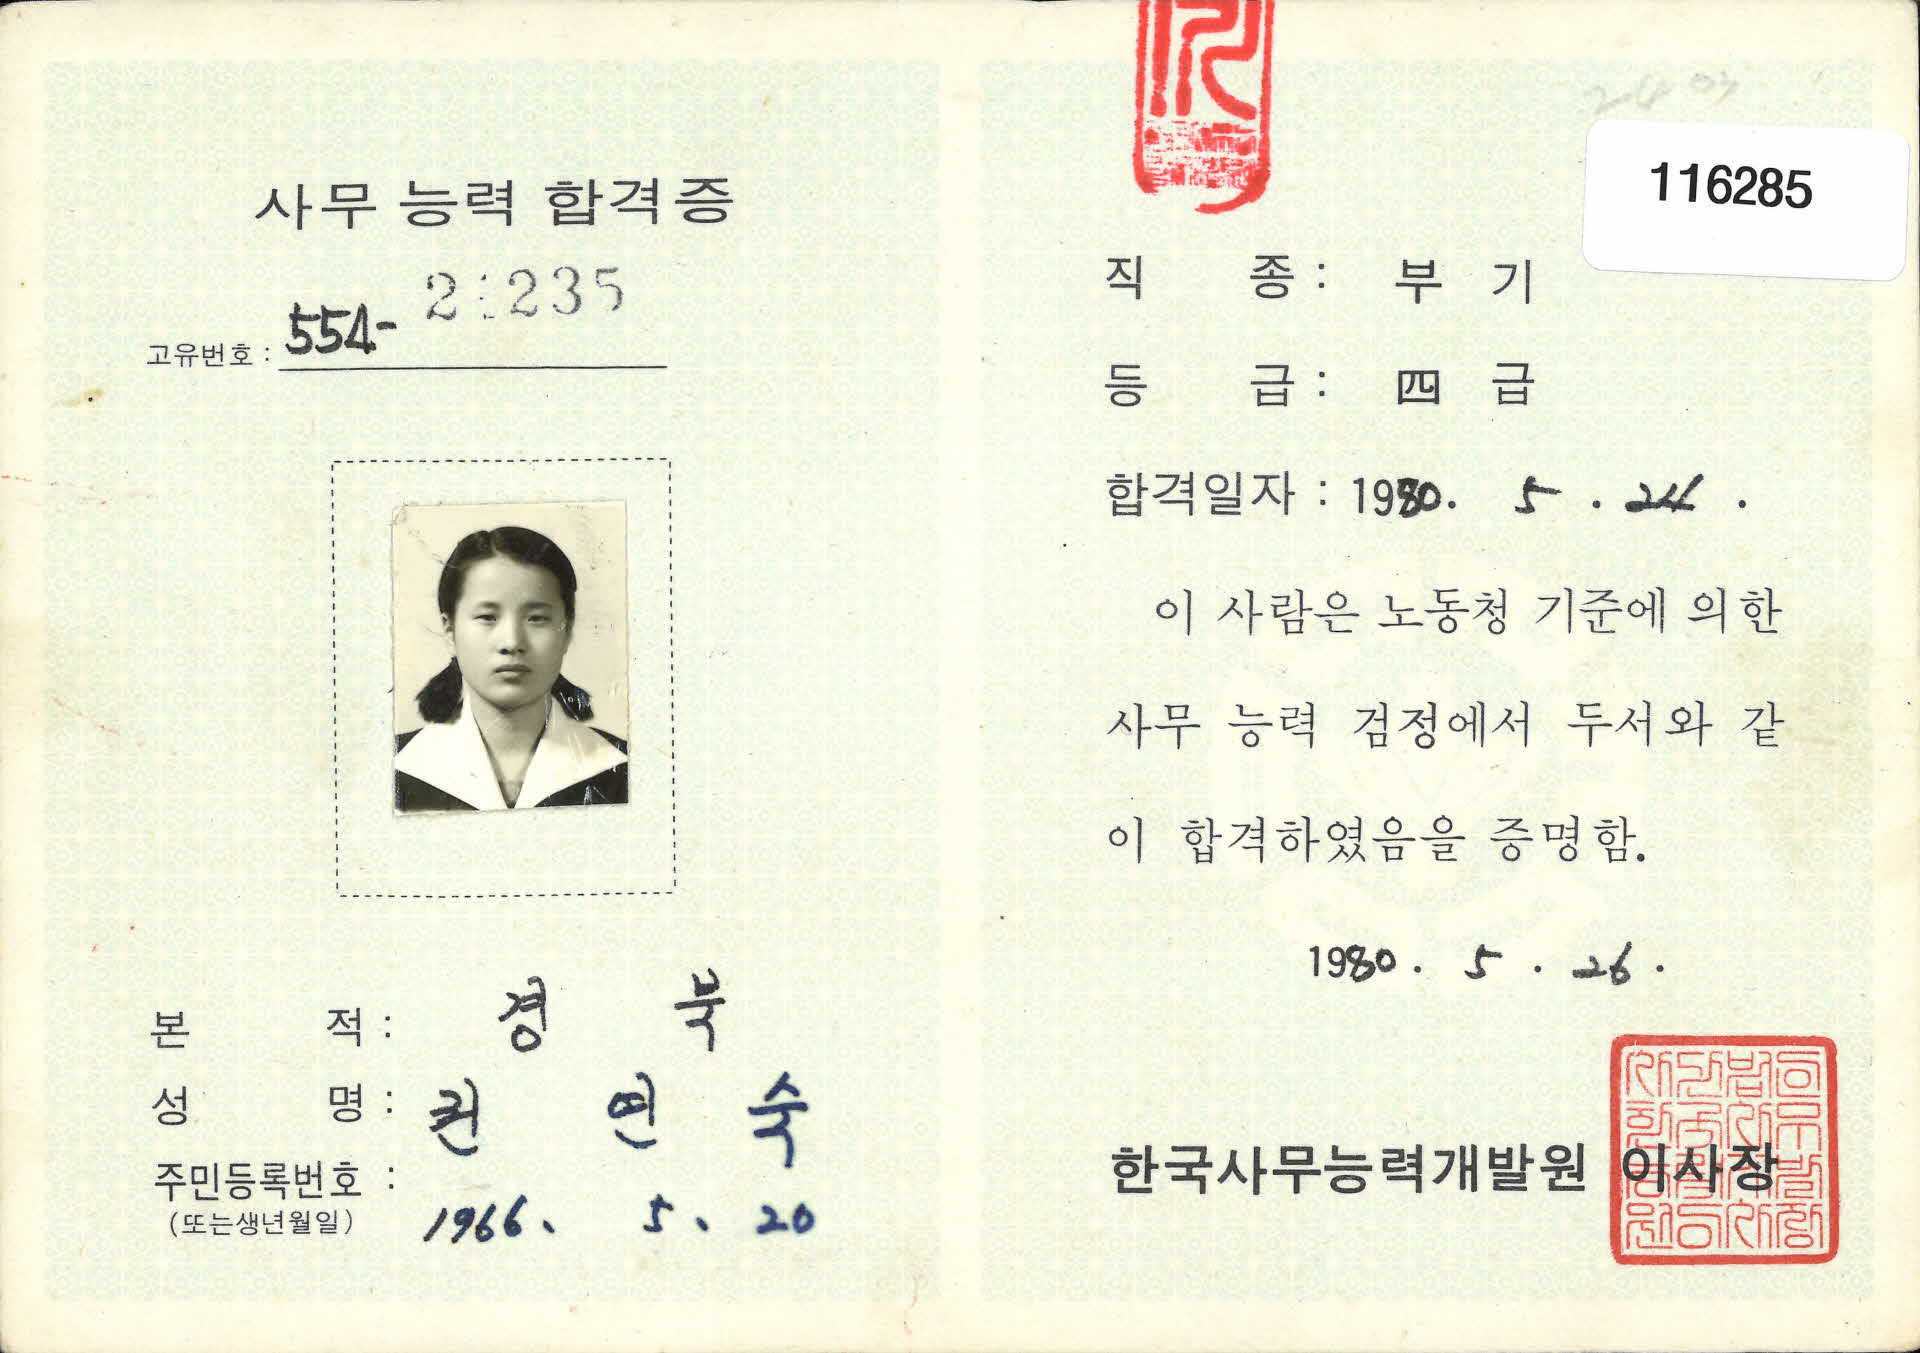 사무 능력 합격증
고유번호 : 554- 21235
본 적 : 경 북
성 명 : 권 연 숙
주민등록번호 :
(또는생년월일) 1966. 5. 20
116285
직 종 : 부 기
등 급 : 四 급
합격일자 : 1980. 5 . 24 .
이 사람은 노동청 기준에 의한
사무 능력 검정에서 두서와 같
이 합격하였음을 증명함.
1980 . 5 . 26 .
한국사무능력개발원 이사장